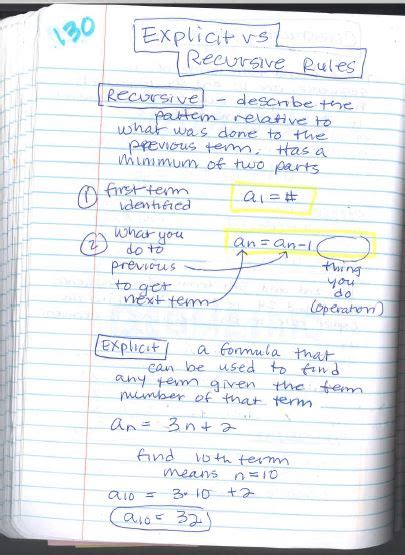 130
Explicit vs
Recursive Rules
Recursive - describe the
pattern relative to
what was done to the
previous term. Has a
minimum of two parts
① first term
identified
a₁ = #
② what you
do to
previous
to get
next term
aₙ = aₙ₋₁
thing
you
do
(operation)
Explicit a formula that
can be used to find
any term given the term
number of that term
aₙ = 3n + 2
find 10th term
means n=10
a₁₀ = 3·10 + 2
a₁₀ = 32